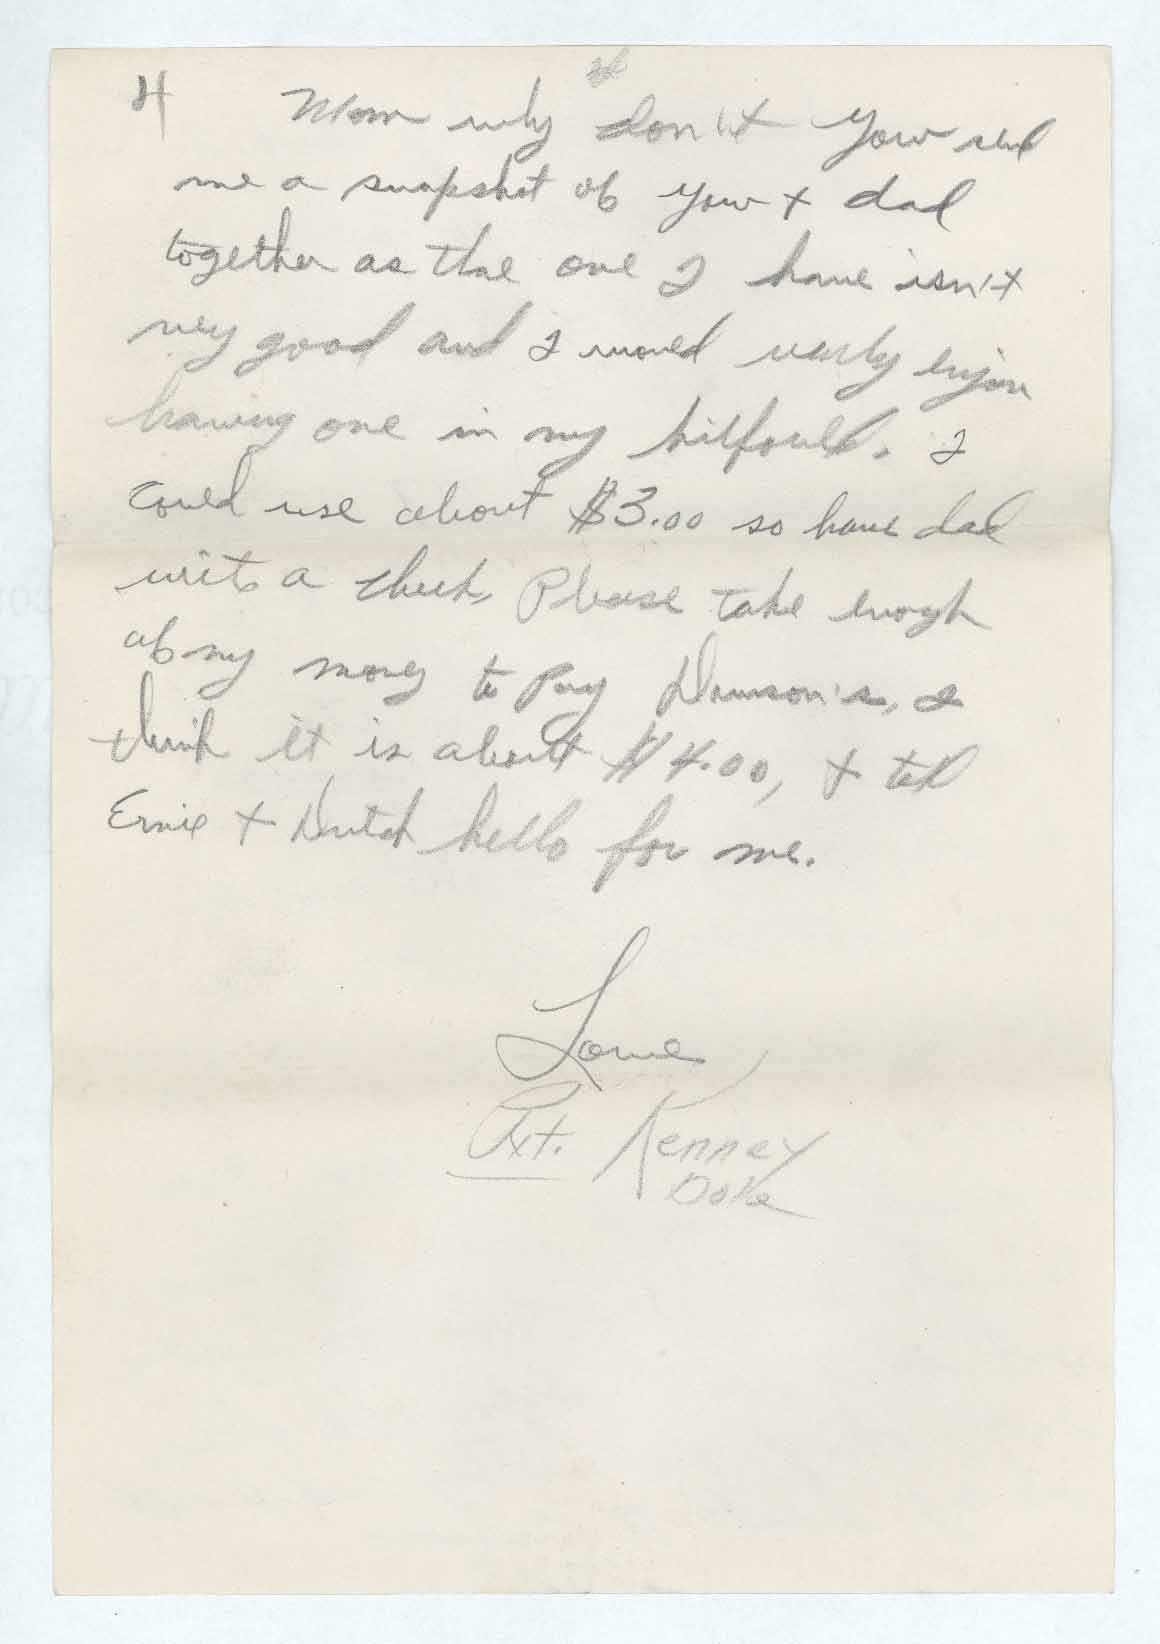 4 Mom why don't you send
me a snapshot of you + dad
together as the one I have isn't
very good and I would really enjoy
having one in my billfould. I
could use about $3.00 so have dad
write a check. Please take enough
of my money to pay Dawson's, I
think it is about $4.00, + tell
Ernie + Dutch hello for me.
Love
Pvt. Kenney
Doke